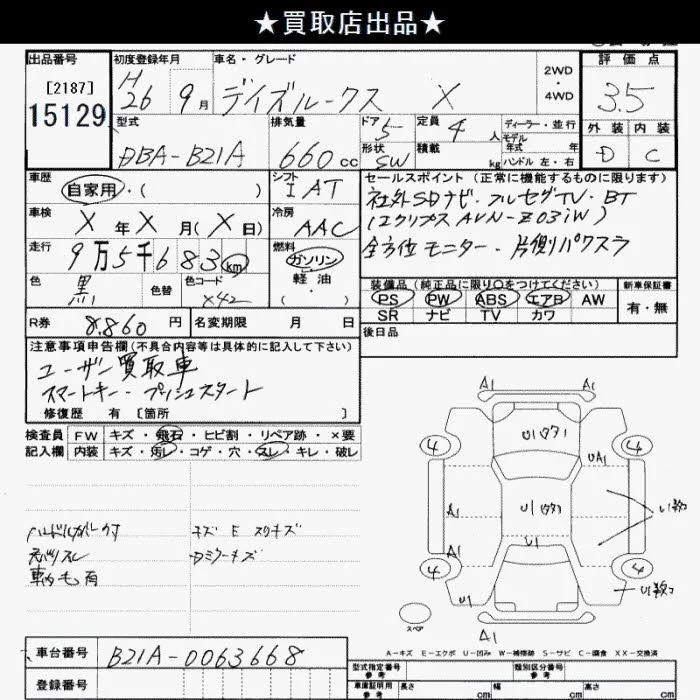 ★買取店出品★
出品番号
[2187]
15129
初度登録年月
H26 9月
車名・グレード
デイズルークス X
2WD・4WD
評価点
3.5
型式
DBA-B21A
排気量
660cc
ドア 5
形状 SW
定員 4人
積載 kg
ディーラー・並行
モデル年式 年式
ハンドル 左・右
外装 内装
D C
車歴
自家用・( )
シフト
IAT
車検
X年X月(X日)
冷房
AAC
走行
9万5千683km
燃料
ガソリン・軽油・( )
色
黒
色替
色コード
X42
R券 8,860円
名変期限 月 日
セールスポイント (正常に機能するものに限ります)
社外SDナビ・フルセグTV・BT
(エクリプスAVN-Z03iW)
全方位モニター・片側パワスラ
装備品 (純正品に限り○をつけてください)
PS PW ABS エアB AW
SR ナビ TV カワ
新車保証書
有・無
後日品
注意事項申告欄(不具合内容等は具体的に記入して下さい)
ユーザー買取車
スマートキー・プッシュスタート
修復歴 有 [箇所 ]
検査員記入欄
FW キズ・飛石・ヒビ割・リペア跡・×要
内装 キズ・汚レ・コゲ・穴・スレ・キレ・破レ
A1 A1
4 4
U1
UA1
A1
U1
A1
U1
4 4
U1
A1
スペア
A-キズ E-エクボ U-凹み W-補修跡 S-サビ C-腐食 XX-交換済
車台番号
B21A-0063668
登録番号
型式指定番号
参考
類別区分番号
参考
車庫証明用
参考
長さ cm 幅 cm 高さ cm